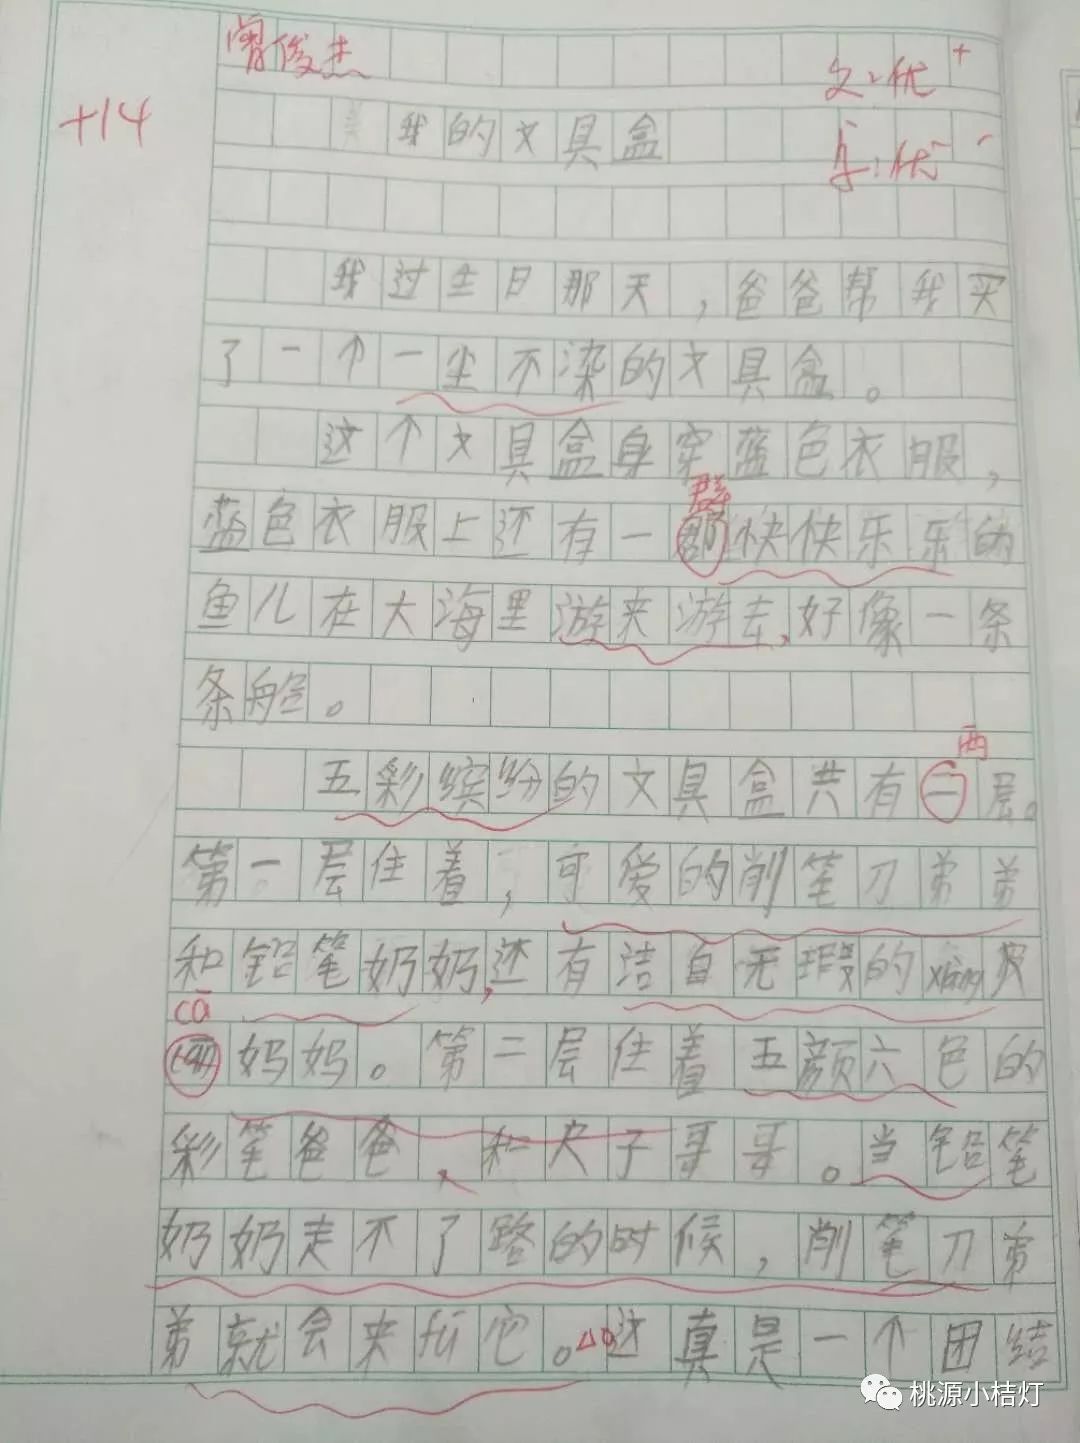 曾俊杰 文:优+
+14 我的文具盒 字:优-
我过生日那天，爸爸帮我买
了一个一尘不染的文具盒。
这个文具盒身穿蓝色衣服，
群
蓝色衣服上还有一郡快快乐乐的
鱼儿在大海里游来游去,好像一条
条船。
两
五彩缤纷的文具盒共有二层。
第一层住着，可爱的削笔刀弟弟
和铅笔奶奶,还有洁白无瑕的xiàng皮
cā
妈妈。第二层住着五颜六色的
彩笔爸爸、和尺子哥哥。当铅笔
奶奶走不了路的时候，削笔刀弟
弟就会来fú它。这真是一个团结
桃源小桔灯